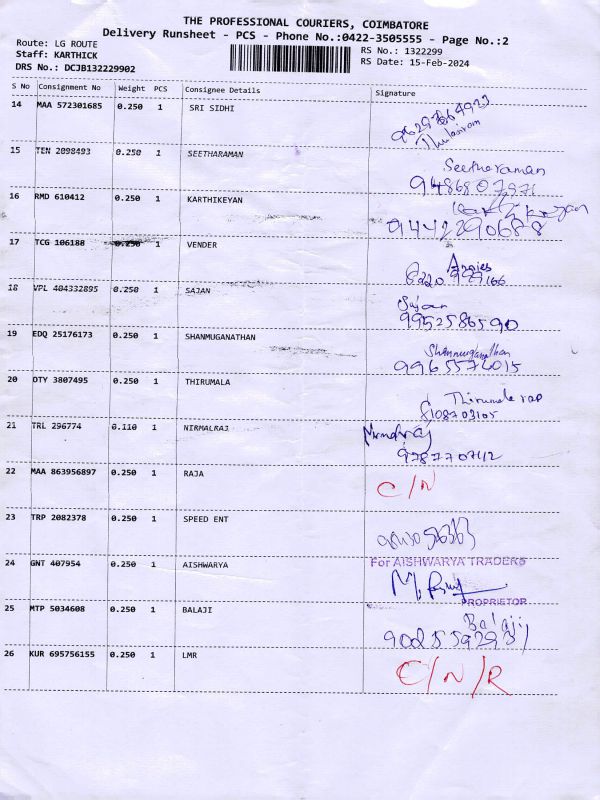 THE PROFESSIONAL COURIERS, COIMBATORE
Delivery Runsheet - PCS - Phone No.:0422-3505555 - Page No.:2
Route: LG ROUTE
Staff: KARTHICK
DRS No.: DCJB132229902
RS No.: 1322299
RS Date: 15-Feb-2024
S No Consignment No Weight PCS Consignee Details Signature
14 MAA 572301685 0.250 1 SRI SIDHI
Thulasiram
15 TEN 2098493 0.250 1 SEETHARAMAN Seetharaman
9486807971
16 RMD 610412 0.250 1 KARTHIKEYAN Karthikeyan
9442290688
17 TCG 106188 0.250 1 VENDER
18 VPL 404332895 0.250 1 SAJAN Sajan
9952586590
19 EDQ 25176173 0.250 1 SHANMUGANATHAN Shanmuganathan
9965576015
20 DTY 3807495 0.250 1 THIRUMALA
8108703105
21 TRL 296774 0.110 1 NIRMALRAJ
9787707112
22 MAA 863956897 0.250 1 RAJA C/N
23 TRP 2082378 0.250 1 SPEED ENT
24 GNT 407954 0.250 1 AISHWARYA For AISHWARYA TRADERS
PROPRIETOR
25 MTP 5034608 0.250 1 BALAJI Balaji
26 KUR 695756155 0.250 1 LMR C/N/R